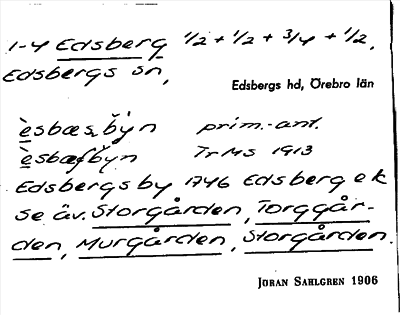 1-4 Edsberg 1/2 + 1/2 + 3/4 + 1/2,
Edsbergs sn,
Edsbergs hd, Örebro län
èsbæs, by̆n prim.-ant.
èsbæʃby̆n Tr Ms 1913
Edsbergs by 1746 Edsberg ek
Se äv. Storgården, Torggår-
den, Murgården, Storgården.
JÖRAN SAHLGREN 1906